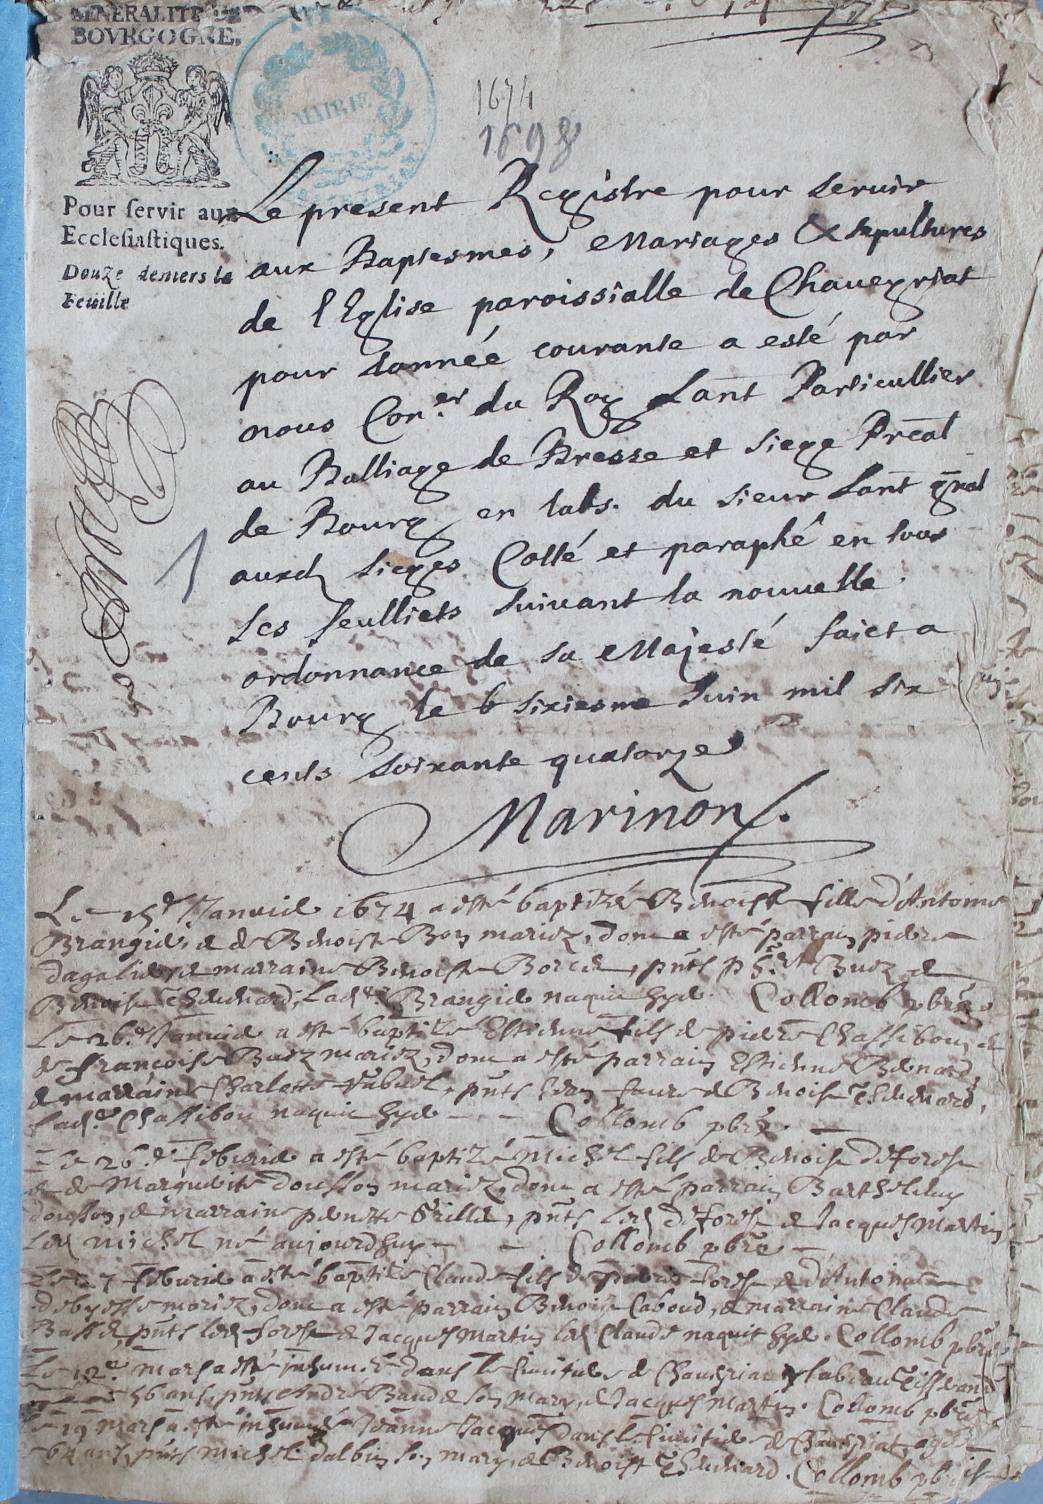 GENERALITÉ DE
BOVRGOGNE.
MAIRIE
1674
1698
Pour servir aux
Ecclesiastiques.
Douze deniers la
Feuille
Le present Registre pour seruir
aux Baptesmes, Mariages & sepultures
de l'Eglise paroissialle de Chaueyriat
pour l'année courante a esté par
nous Con.er du Roy Lant Particullier
au Balliage de Bresse et siege Preal
de Bourg en labs. du sieur Lant gnal
auxd sieges Cotté et paraphé en tous
ses feulliets suiuant la nouuelle
ordonnance de sa Majesté faict a
Bourg le 6 sixiesme Juin mil six
cents soixante quatorze
Marinon
Le 15e Januie 1674 a esté baptizé Benoiste fille d'Antoine
Brangie & de Benoiste Bon mariez, dont a esté parrain pierre
& marraine Benoiste Borcer, pnts Buez &
Benoist, Lade Brangie naquit hyer Collomb pbre
Le 26e Januie a esté baptizé Estienne fils de pierre Chassibou, et
de francoise Buez mariez, dont a esté parrain Estienne Benard,
& marraine Charlotte, pnts Jean faure & Benoist
Lade Chassibou naquit hyer - - Collomb pbre. -
Le 26e feburie a esté baptizé Michel fils de Benoist deforest
et de Marguerite dousson mariez, dont a esté parrain Barthelemy
dousson, & marraine pernette, pnts led deforest & Jacques Martin
led Michel né aujourdhuy - - Collomb pbre -
Le 27 feburie a esté baptizé Claude fils de pierre forest & d'Antoinette
mariez, dont a esté parrain Benoist Caboud, & marraine Claude
pnts led forest & Jacques Martin led Claude naquit hyer. Collomb pbre
Le 12e mars a esté inhumée dans le Cimitiere de Chaueriat
56 ans, pnts André Baude son mary & Jacques Martin. Collomb pbre
Le 19 mars a esté inhumée Jeanne Jacquet dans le Cimitiere de Chaueriat, agée
64 ans, pnts Michel dalbin son mary, & Benoist. Collomb pbre